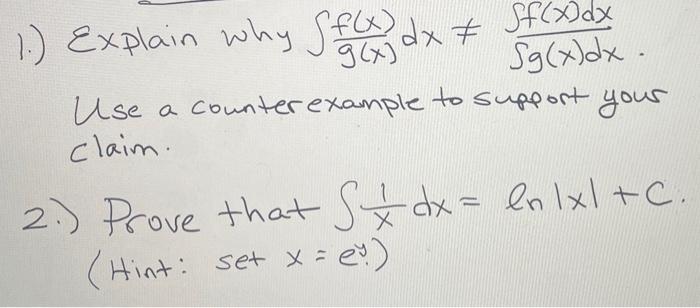 1.) Explain why ∫ f(x)/g(x) dx ≠ ∫f(x)dx / ∫g(x)dx .
Use a counterexample to support your
claim.
2.) Prove that ∫ 1/x dx = ln|x| + C.
(Hint: set x = e^y.)